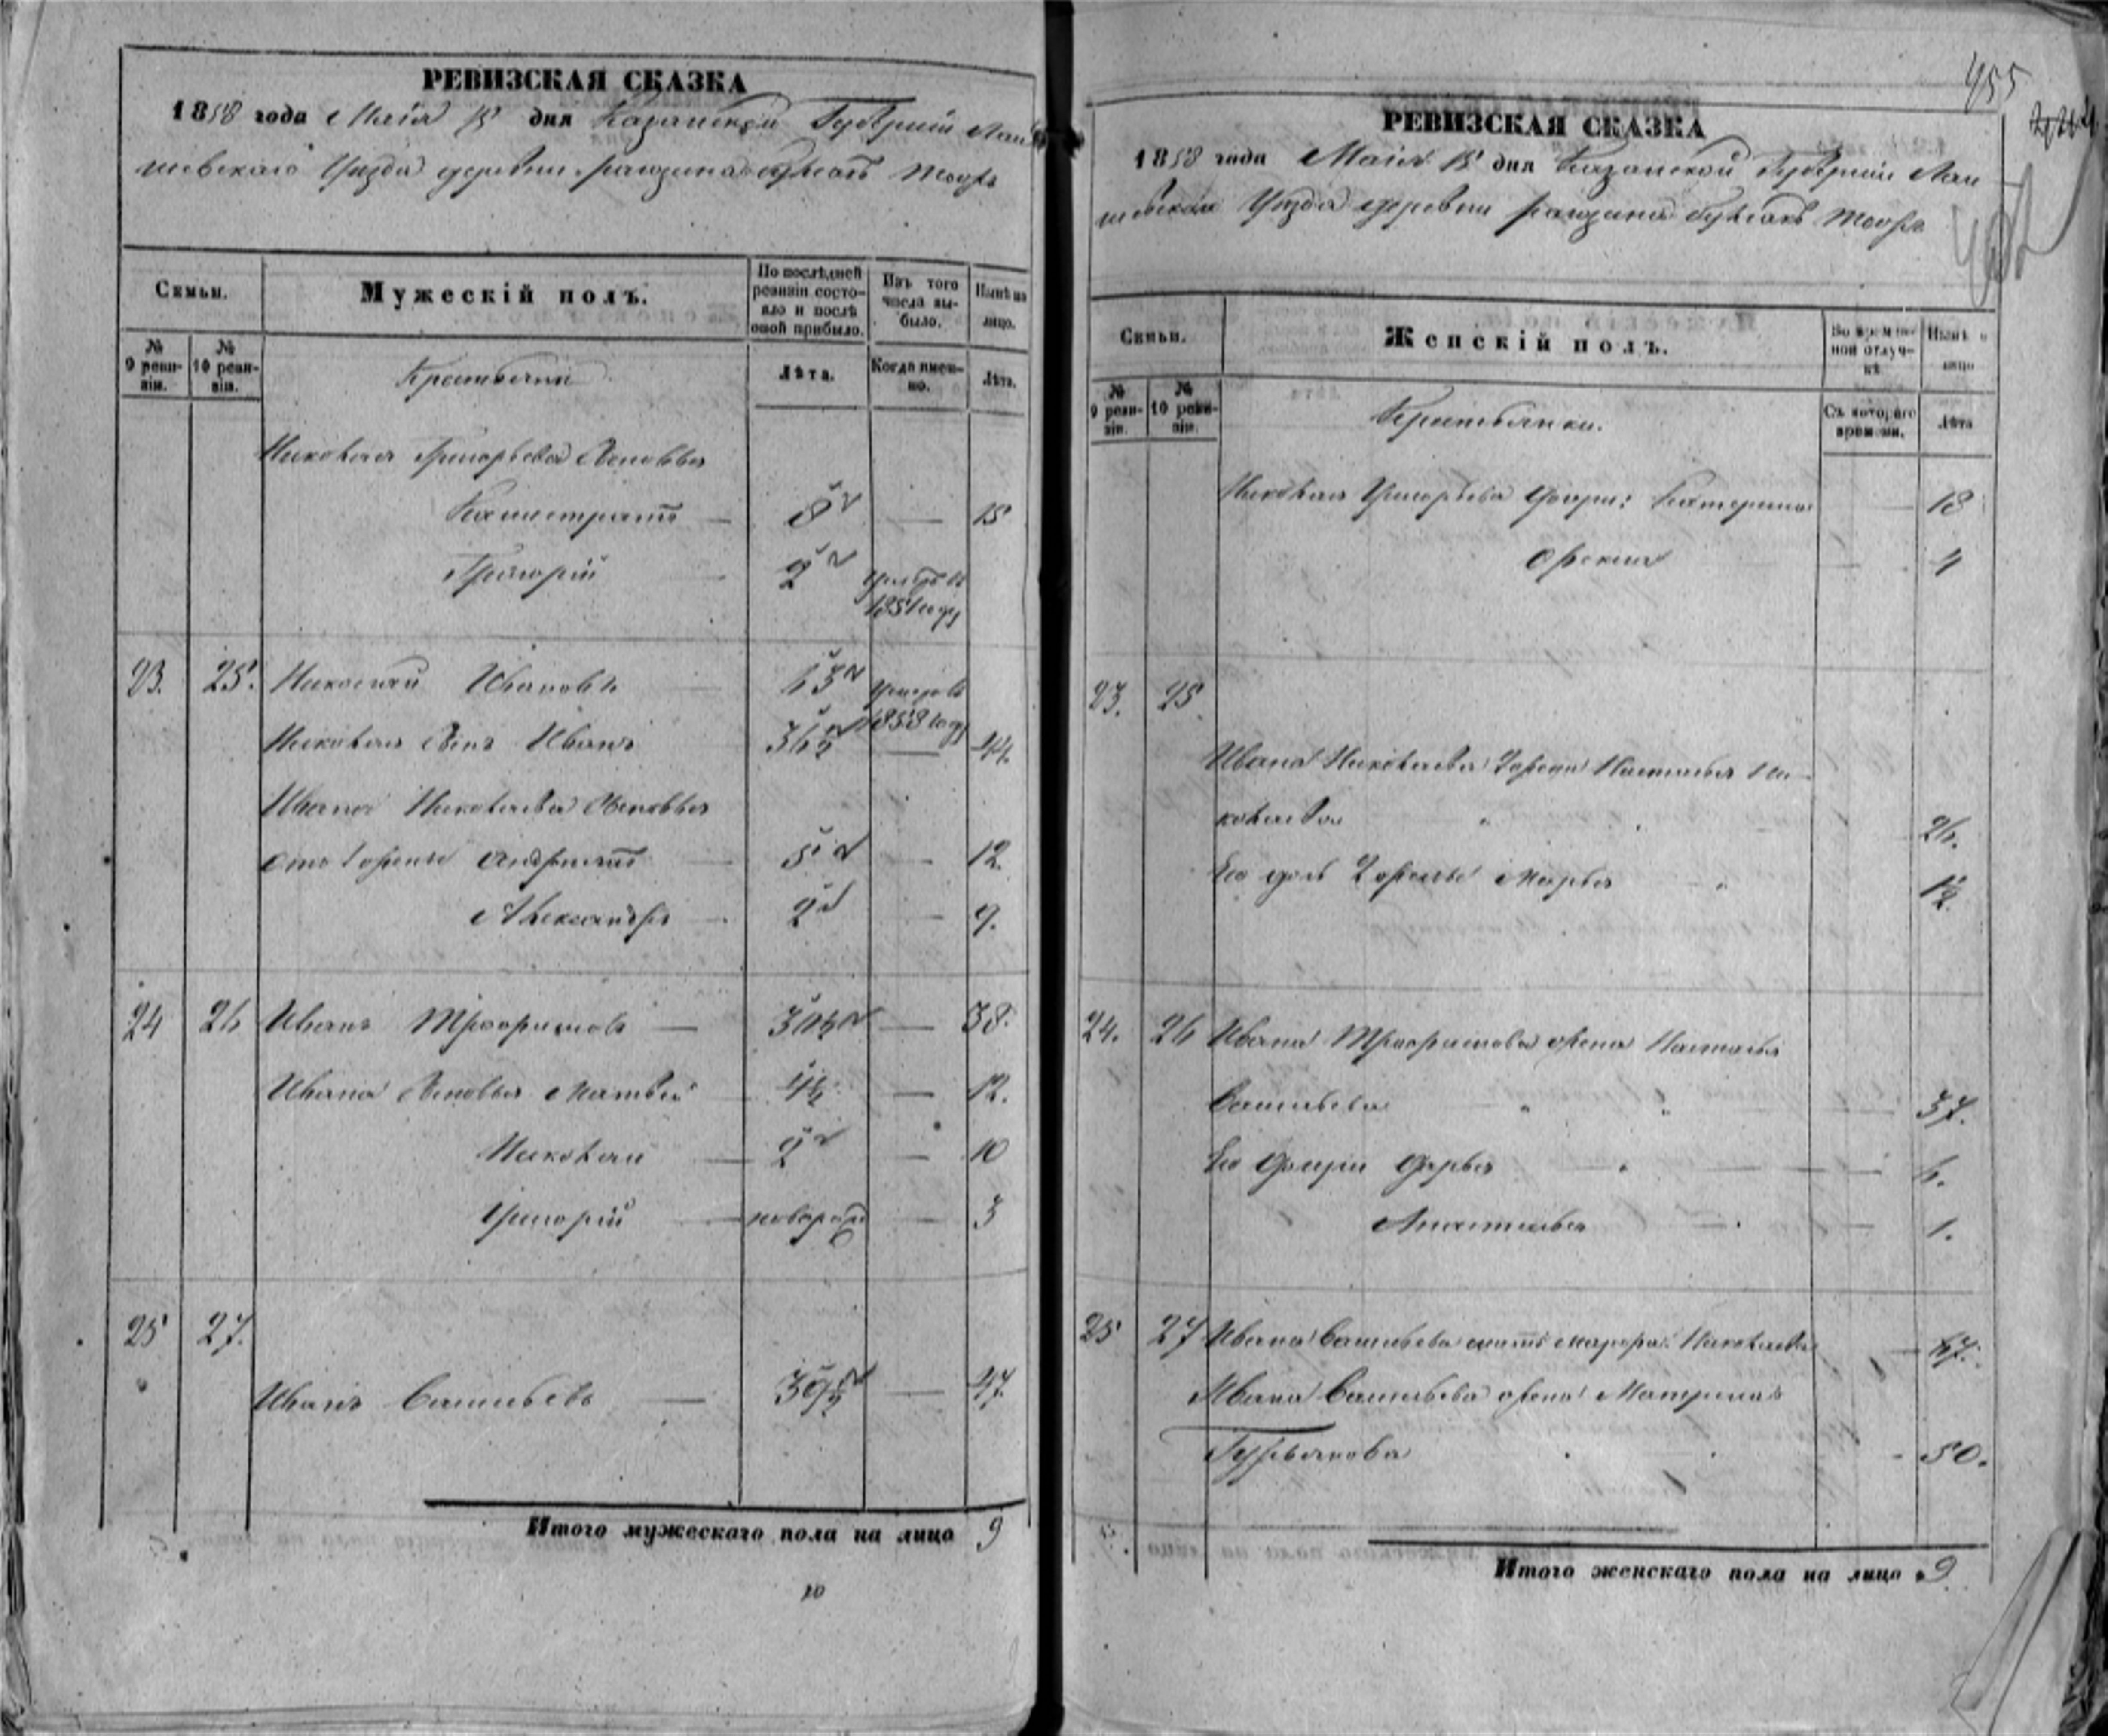 РЕВИЗСКАЯ СКАЗКА
1858 года Маія 15 дня Казанской Губерніи Лаи
шевскаго Уѣзда деревни
Семьи.
Мужескій полъ.
По послѣдней ревизіи состояло и послѣ оной прибыло.
Изъ того числа выбыло.
Нынѣ на лицо.
№ 9 ревизіи.
№ 10 ревизіи.
Крестьяни
Лѣта.
Когда именно.
Лѣта.
Николая Григорьева сыновья
Калистратъ — 8 — 15
Григорій — 2 умеръ въ 1851 году
23. 25. Николай Ивановъ — 63 умеръ въ 1858 году
Николая сынъ Иванъ 36½ — 44.
Ивана Николаева сыновья
отъ 1 жены — 5 — 12.
Александръ — 2 — 9.
24 26 Иванъ Трофимовъ — 30½ — 38.
Ивана сыновья Матвей — 4½ — 12.
Николай — 2 — 10
Григорій — новорож — 3
25 27.
Иванъ Васильевъ — 39½ — 47.
Итого мужескаго пола на лицо 9
10
455
РЕВИЗСКАЯ СКАЗКА
1858 года Маія 15 дня Казанской Губерніи Лаи
шевскаго Уѣзда деревни
Семьи.
Женскій полъ.
Во временной отлучкѣ
Нынѣ на лицо
№ 9 ревизіи.
№ 10 ревизіи.
Крестьянки.
Съ котораго времени.
Лѣта
Николая Григорьева дочери: Катерина — 18
— 4
23. 25
Ивана Николаева 2 жена Настасья Ни-
колаева 26.
Его дочь 2 жены Марья 12
24. 26 Ивана Трофимова жена Настасья
Васильева 37.
Его дочери Дарья — 6.
Анастасья — 1.
25 27 Ивана Васильева мать Николаева — 67.
Ивана Васильева жена Матрена
Гурьянова 50.
Итого женскаго пола на лицо 9